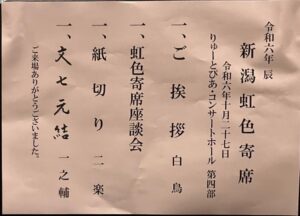 令和六年 辰
新潟虹色寄席
令和六年十月二十七日
りゅーとぴあ・コンサートホール 第四部
一、ご挨拶 白鳥
一、虹色寄席座談会
一、紙切り 二楽
一、文七元結 一之輔
ご来場ありがとうございました。